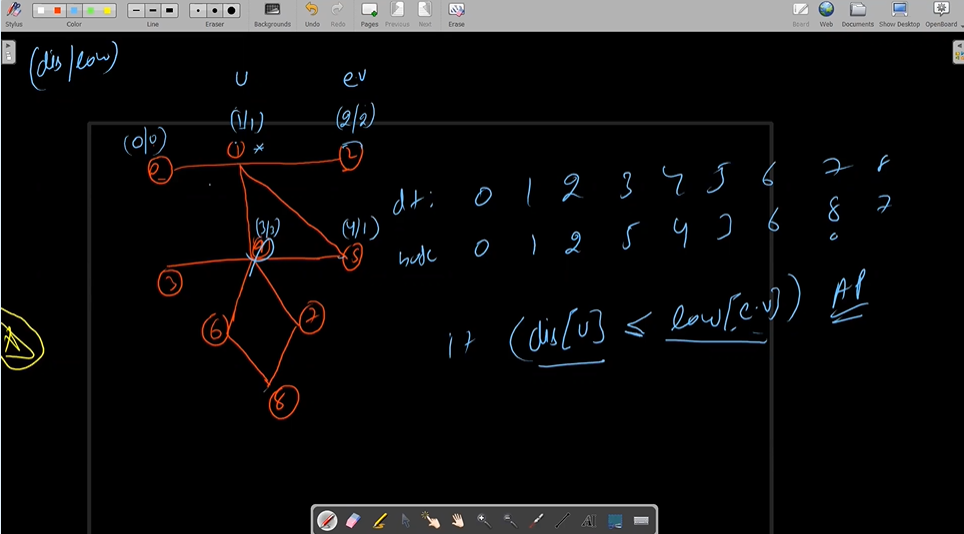 Stylus Color Line Eraser Backgrounds Undo Redo Pages Previous Next Erase Board Web Documents Show Desktop OpenBoard
(dis/low)
U ev
(1/1) (2/2)
(0/0)
1 * 2
0
dt: 0 1 2 3 4 5 6 7 8
(3/3) (4/1)
0 1 2 5 4 3 6 8 7
4 5
3
if (dis[U] ≤ low[c.v]) AP
6 7
8